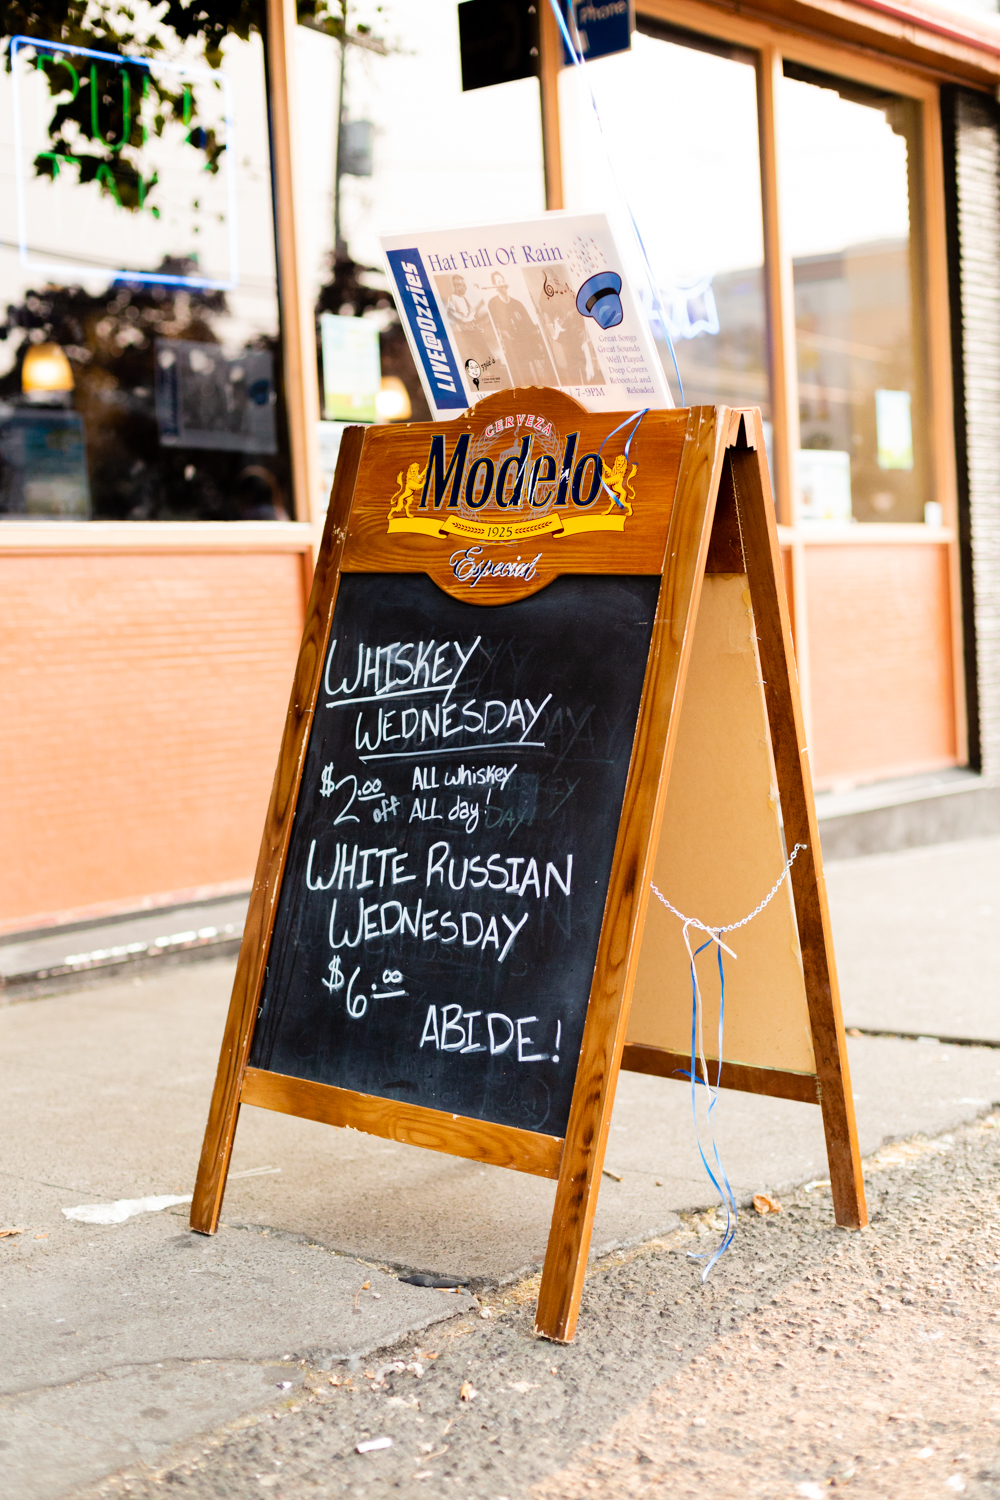 Phone
LIVE@Ozzies
Hat Full Of Rain
Great Songs
Great Sounds
Well Played
Deep Covers
Rebooted and
Reloaded
7-9PM
CERVEZA
Modelo
1925
Especial
WHISKEY
WEDNESDAY
$2.00 off
ALL whiskey
ALL day!
WHITE RUSSIAN
WEDNESDAY
$6.00
ABIDE!